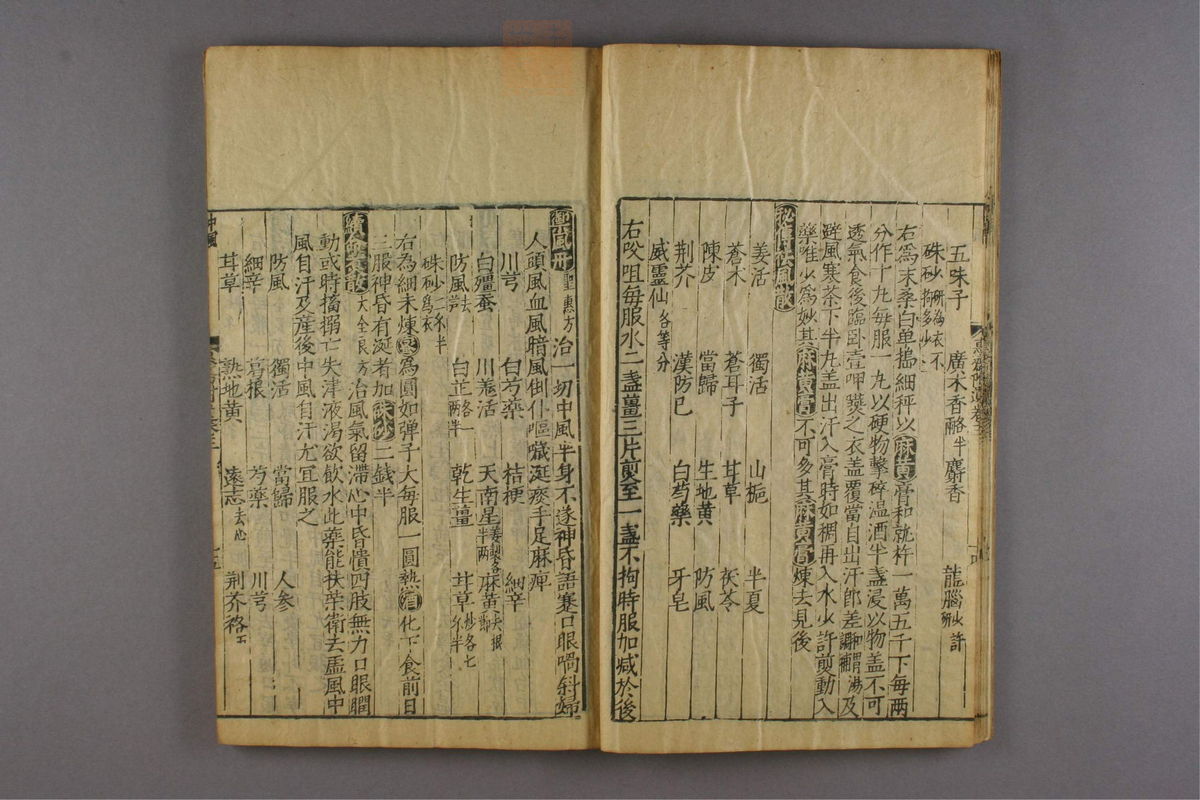 五味子 廣木香酪半 麝香 龍腦少許研
硃砂研為衣不拘多少
右為末桑白單搗細秤以麻黃膏和就杵一萬五千下每兩
分作十九每服一丸以硬物擊碎温酒半盞浸以物盖不可
透氣食後臨卧壹呷嚥之衣盖覆當自出汗郎差及
避風寒茶下半丸盖出汗入膏時如稠再入水少許煎動入
藥唯少為妙其麻黃膏不可多其麻黃膏煉去見後
秘傳祛風散
羗活 獨活 山梔 半夏
蒼木 蒼耳子 甘草 茯苓
陳皮 當歸 生地黃 防風
荆芥 漢防已 白芍藥 牙皂
威靈仙各等分
右㕮咀每服水二盞薑三片煎至一盞不拘時服加减於後
禦風丹聖惠方治一切中風半身不遂神昏語蹇口眼喎斜婦
人頭風血風暗風倒仆嘔噦涎痰手足麻痺
川芎 白芍藥 桔梗 細辛
白殭蚕 川羗活 天南星姜製各半兩 麻黃去根節
防風去芦 白芷酪一兩半 乾生薑 甘草炒各七分半
硃砂二分半為衣
右為細末煉蜜為圓如弹子大每服一圓熱酒化下食前日
三服神昏有涎者加硃砂二錢半
續命煮散大全良方治風氣留滯心中昏憒四肢無力口眼瞤
動或時搐搦亡失津液渴欲飲水此藥能扶榮衛去虛風中
風自汗及産後中風自汗尤宜服之
防風 獨活 當歸 人參
細辛 葛根 芍藥 川芎
甘草 熟地黃 遠志去心 荆芥酪五
中風